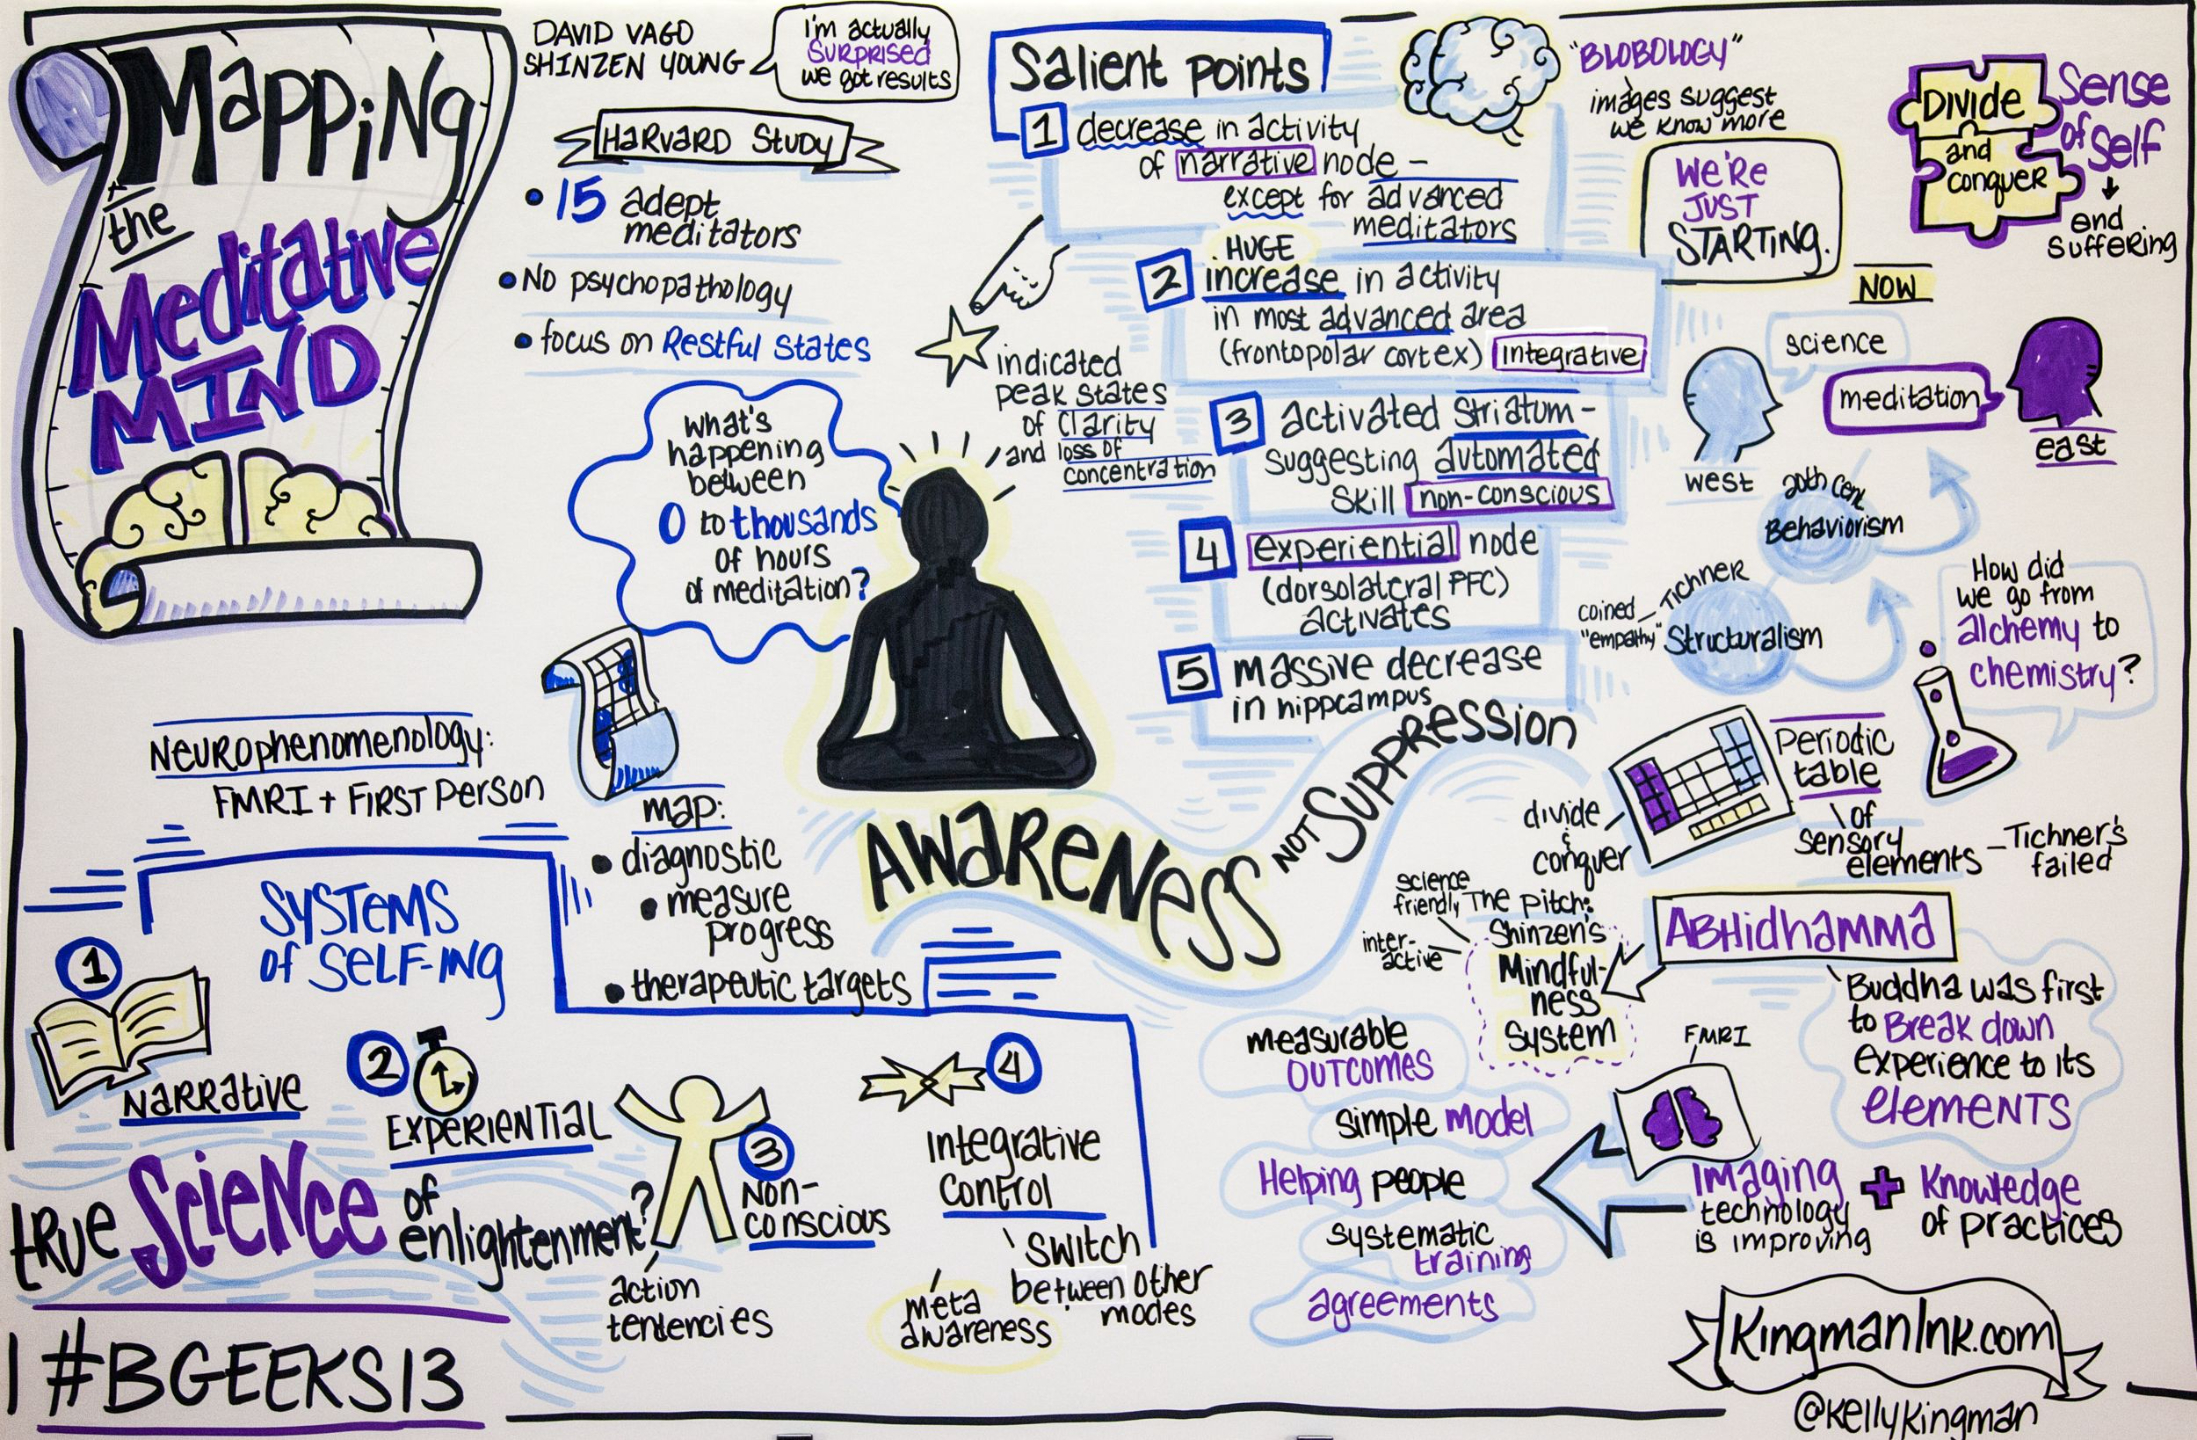 Mapping
the
Meditative
MIND
DAVID VAGO
SHINZEN YOUNG
I'm actually
SURPRISED
we got results
HARVARD STUDY
• 15 adept
meditators
• No psychopathology
• focus on Restful States
What's
happening
between
0 to thousands
of hours
of meditation?
indicated
peak states
of Clarity
and loss of
concentration
Salient points
1 decrease in activity
of narrative node –
except for advanced
meditators
HUGE
2 increase in activity
in most advanced area
(frontopolar cortex) integrative
3 activated Striatum –
suggesting automated
skill non-conscious
4 experiential node
(dorsolateral PFC)
activates
5 massive decrease
in hippcampus
"BLOBOLOGY"
images suggest
we know more
We're
JUST
STARTING.
Divide
and
conquer
Sense
of
Self
end
suffering
NOW
science
meditation
west
east
20th Cent.
Behaviorism
Tichner
coined
"empathy"
Structuralism
How did
we go from
alchemy to
chemistry?
Periodic
table
of
sensory
elements – Tichner's
failed
divide
&
conquer
Neurophenomenology:
FMRI + FIRST Person
map:
• diagnostic
• measure
progress
• therapeutic targets
AWARENESS NOT SUPPRESSION
SYSTEMS
of SELF-ING
1
NARRative
2
EXPERIENTIAL
3
NON-
conscious
action
tendencies
4
Integrative
Control
switch
between other
modes
meta
awareness
true Science of
enlightenment?
science
friendly
inter-
active
The pitch:
Shinzen's
Mindful-
ness
System
ABHidhamma
Buddha was first
to Break down
experience to its
elements
measurable
outcomes
simple model
Helping people
systematic
training
agreements
FMRI
Imaging
technology
is improving
+ Knowledge
of practices
#BGEEKS13
KingmanInk.com
@KellyKingman